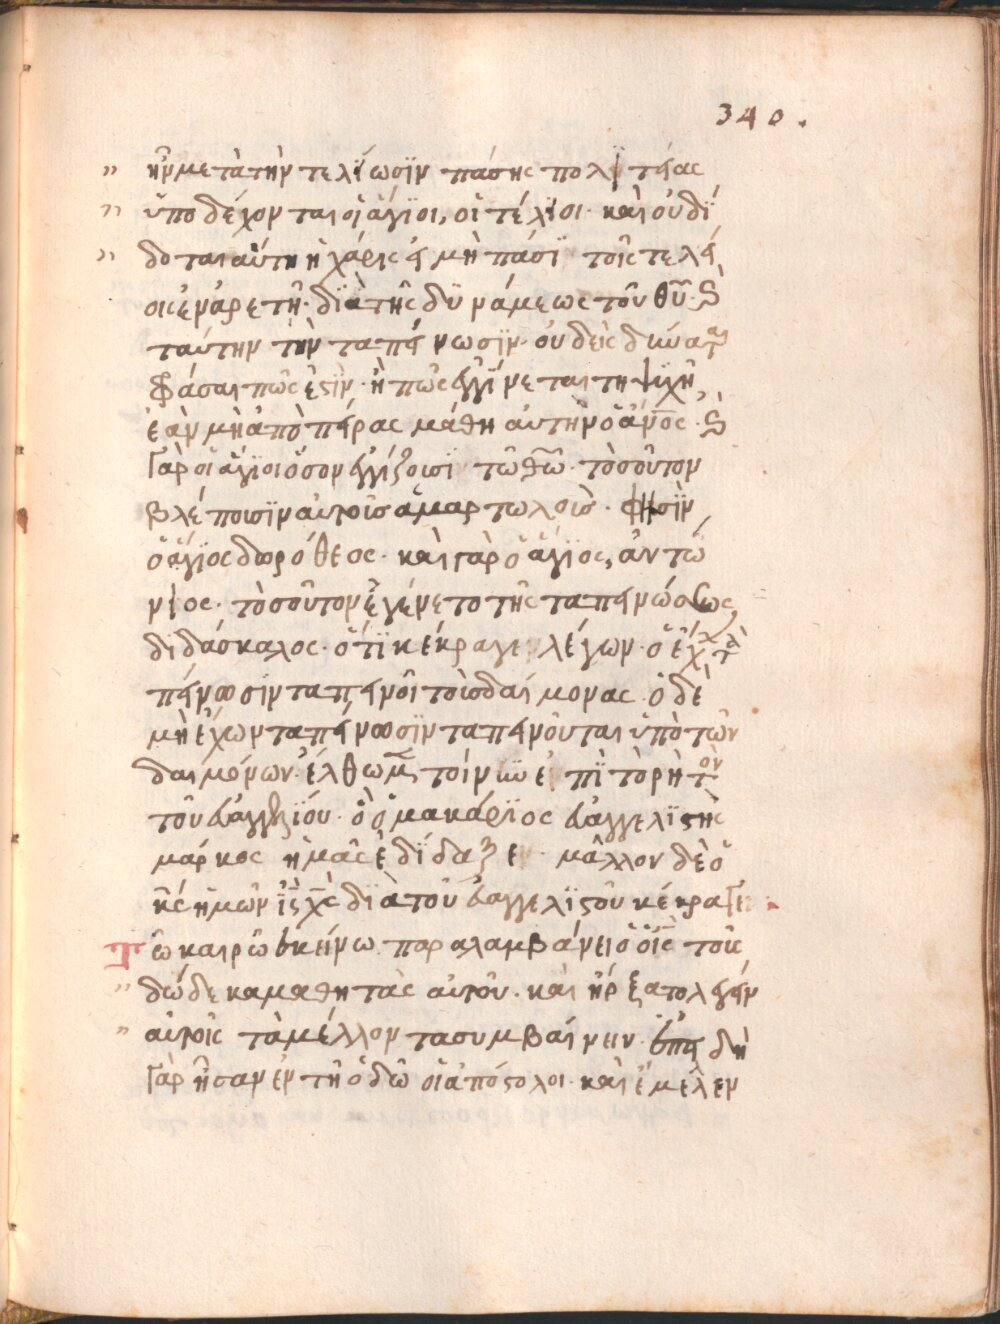 340.
ἣν μετὰ τὴν τελίωσϊν πάσης πολϊτείας
ὑποδέχονται οἱ ἅγϊοι, οἱ τέλιοι· καὶ οὐ δΐ
δοται αὕτη ἡ χάρις εἰ μὴ πᾶσϊ τοῖς τελεί
οις ἐν ἀρετῇ· δϊὰ τῆς δϋνάμεως τοῦ θῡ· καὶ
ταύτην τὴν ταπείνωσϊν οὐδεὶς δύναται
φράσαι πῶς ἐστὶν· ἢ πῶς ἐγγΐνεται τῇ ψϊχῇ,
ἐὰν μὴ ἀπὸ πείρας μάθῃ αὐτὴν ὁ ἄνος· καὶ
γὰρ οἱ ἅγϊοι ὅσον ἐγγίζοισϊ τῶ θῶ· τὸσοῦτον
βλέποισϊν αὐτοὺς ἁμαρτωλοὺς· φησὶν
ὁ ἅγϊος δωρόθεος· καὶ γὰρ ὁ ἅγϊος, ἀντώ
νιος· τὸσοῦτον ἐγένετο τῆς ταπεινώσεως
διδάσκαλος· ὅτϊ κέκραγε λέγων· ὁ ἔχων τα
πείνωσϊν ταπεινοῖ τοὺς δαίμονας· ὁ δὲ
μὴ ἔχων ταπείνωσϊν ταπεινοῦται ὑπὸ τῶν
δαιμόνων· ἔλθωμεν τοίνυν ἐπῒ τὸ ρητὸν
τοῦ εὐαγγελίου· ὃ ὁ μακάρϊος εὐαγγελϊστὴς
μάρκος ἡμᾶς ἐδίδαξεν· μᾶλλον δὲ ὁ
κς ἡμῶν ις χς δϊὰ τοῦ εὐαγγελϊστοῦ κέκραγεν
Τῶ καιρῶ ἐκείνω παραλαμβάνει ὁ ις τοὺς
δώδεκα μαθητὰς αὐτοῦ· καὶ ἤρξατο λέγειν
αὐτοῖς τὰ μέλλοντα συμβαίνειν· ἐπειδὴ
γὰρ ἦσαν ἐν τῇ ὁδῶ οἱ ἀπόστολοι· καὶ ἔμελεν